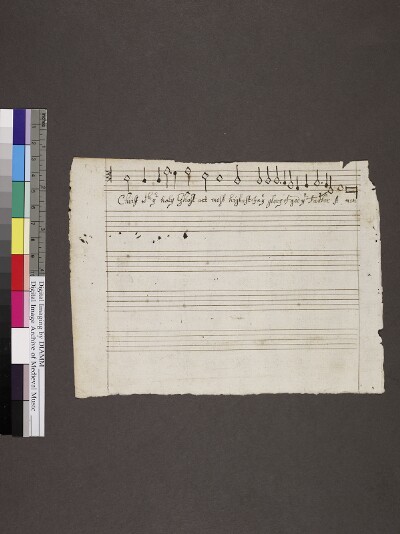 Christ wth ye holy Ghost art most high in the glory of god ye Father A men
Digital Imaging by DIAMM
Digital Image Archive of Medieval Music